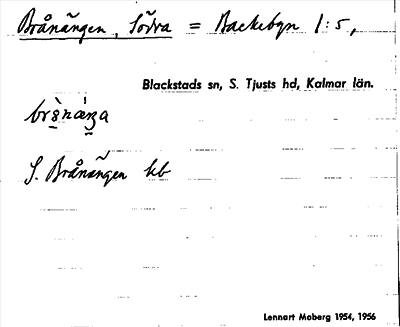 Brånängen, Södra = Backebyn 1:5,
Blackstads sn, S. Tjusts hd, Kalmar län.
S. Brånängen kb
Lennart Moberg 1954, 1956